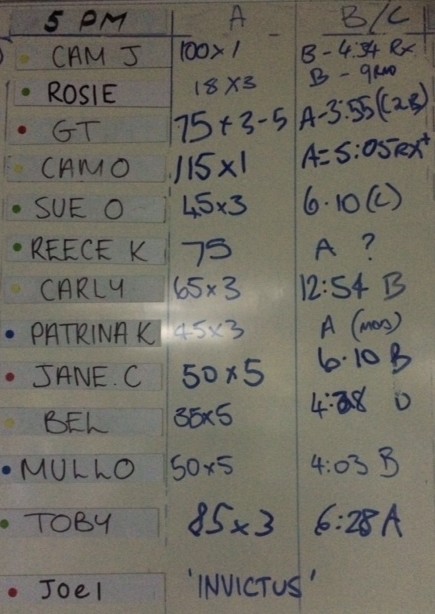 5 PM A B/C
CAM J 100x1 B-4:34 Rx
ROSIE 18x3 B-
GT 75+3-5 A-3:55
CAMO 115x1 A=5:05Rx+
SUE O 45x3 6.10(C)
REECE K 75 A ?
CARLY 65x3 12:54 B
PATRINA K 45x3 A
JANE.C 50x5 6.10 B
BEL 35x5
MULLO 50x5 4:03 B
TOBY 85x3 6:28 A
Joel 'INVICTUS'